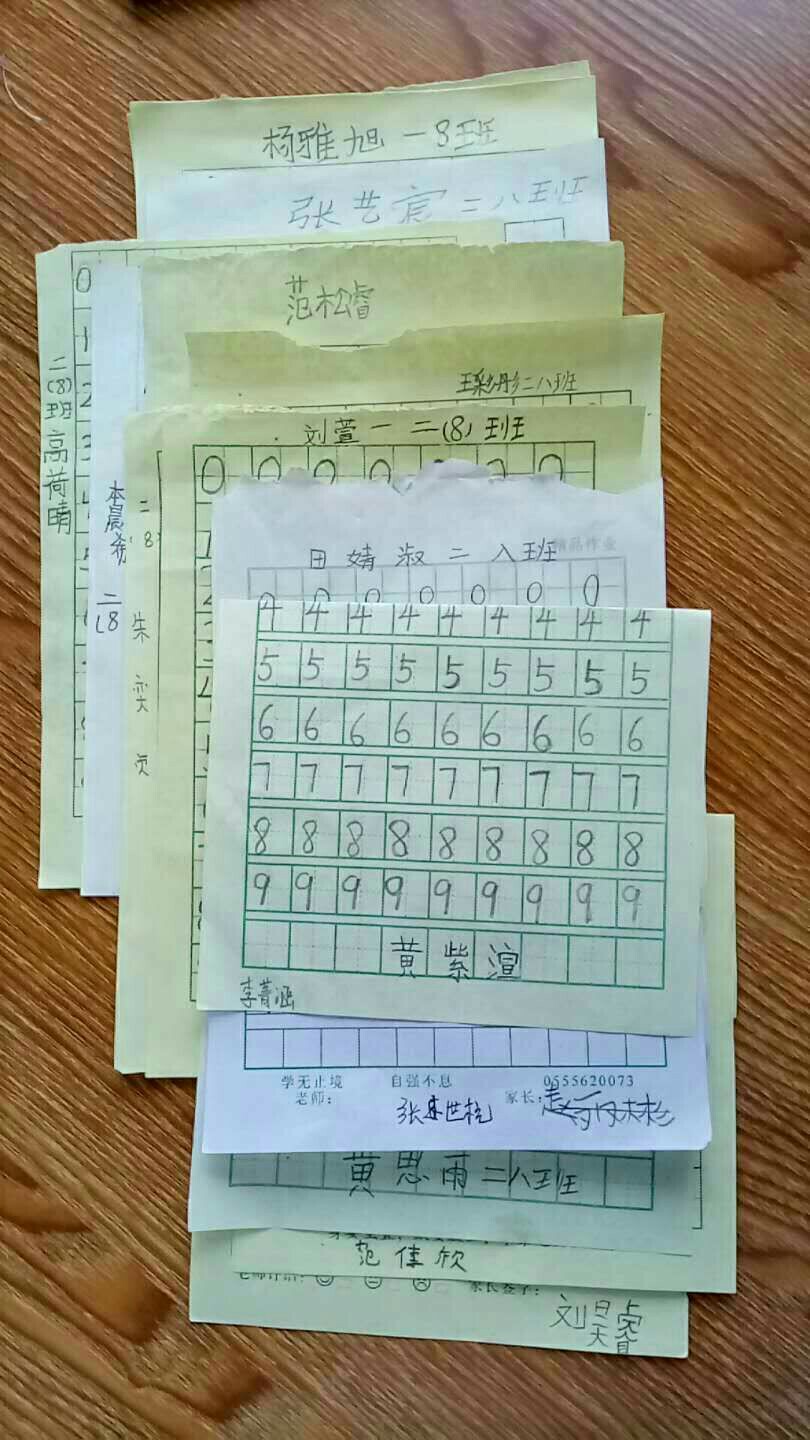 杨雅旭 一8班
张艺宸 二八班
范松睿
二(8)班 高荷晴
二八班
刘萱一 二(8)班
二(8
二(8)
朱奕
精品作业
田婧淑二入班
0 0 0 0 0 0 0
4 4 4 4 4 4 4 4 4
5 5 5 5 5 5 5 5 5
6 6 6 6 6 6 6 6 6
7 7 7 7 7 7 7 7 7
8 8 8 8 8 8 8 8 8
9 9 9 9 9 9 9 9 9
黄紫渲
李菁涵
学无止境 自强不息 0555620073
老师: 家长:
黄思雨二八班
范佳欣
刘昊睿